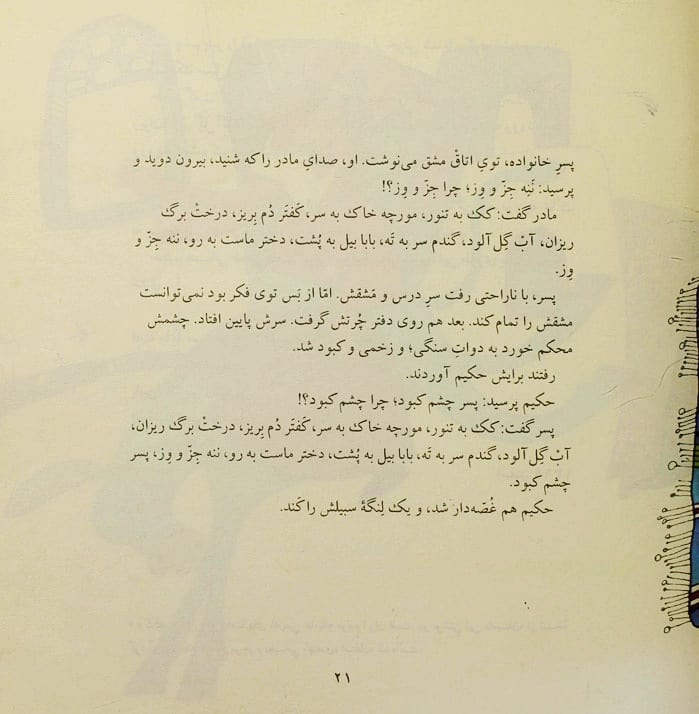 پسرِ خانواده، تویِ اتاقْ مشق می‌نوشت. او، صدایِ مادر را که شنید، بیرون دوید و
پرسید: نَنِه جِزّ و وِز؛ چرا جِزّ و وِز؟!
مادر گفت: کک به تنور، مورچه خاک به سر، کَفتَر دُم بِریز، درختْ برگ
ریزان، آبْ گِل آلود، گندم سر به تَه، بابا بیل به پُشت، دختر ماست به رو، ننه جِزّ و
وِز.
پسر، با ناراحتی رفت سرِ درس و مَشقش. امّا از بَس توی فکر بود نمی‌توانست
مشقش را تمام کند. بعد هم روی دفتر چُرتش گرفت. سرش پایین افتاد. چشمش
محکم خورد به دواتِ سنگی؛ و زخمی و کبود شد.
رفتند برایش حکیم آوردند.
حکیم پرسید: پسر چشم کبود؛ چرا چشم کبود؟!
پسر گفت: کک به تنور، مورچه خاک به سر، کَفتَر دُم بِریز، درختْ برگ ریزان،
آبْ گِل آلود، گندم سر به تَه، بابا بیل به پُشت، دختر ماست به رو، ننه جِزّ و وِز، پسر
چشم کبود.
حکیم هم غُصّه‌دار شد، و یک لِنگهٔ سبیلش را کَند.
۲۱